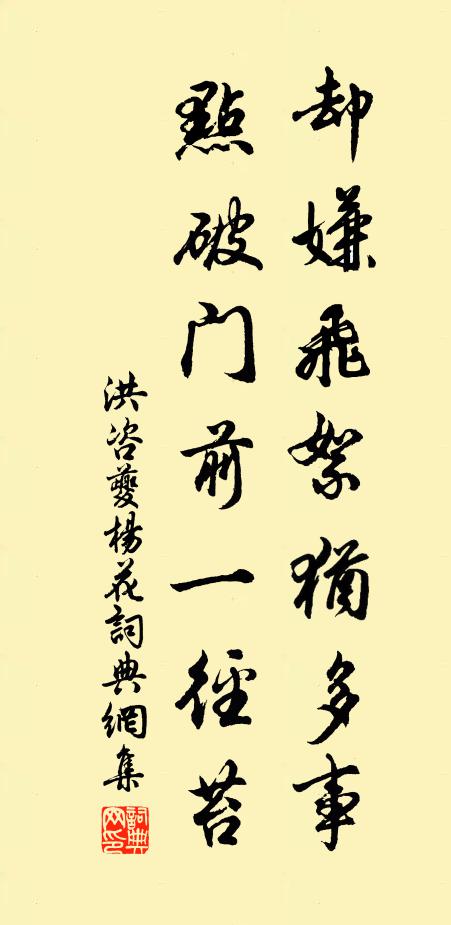 却嫌飛絮猶多事
點破门前一徑苔
洪咨夔楊花詞典網集
詞典網印